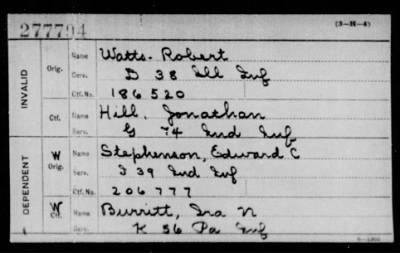 277794 (3-H-4)
INVALID
Orig. Name Watts. Robert
Serv. D 38 Ill Inf
Ctf. No. 186520
Ctf. Name Hill. Jonathan
Serv. G 74 Ind Inf
DEPENDENT
W Orig. Name Stephenson, Edward C
Serv. I 39 Ind Inf
Ctf. No. 206777
W Ctf. Name Burritt, Ira N
Serv. K 56 Pa Inf